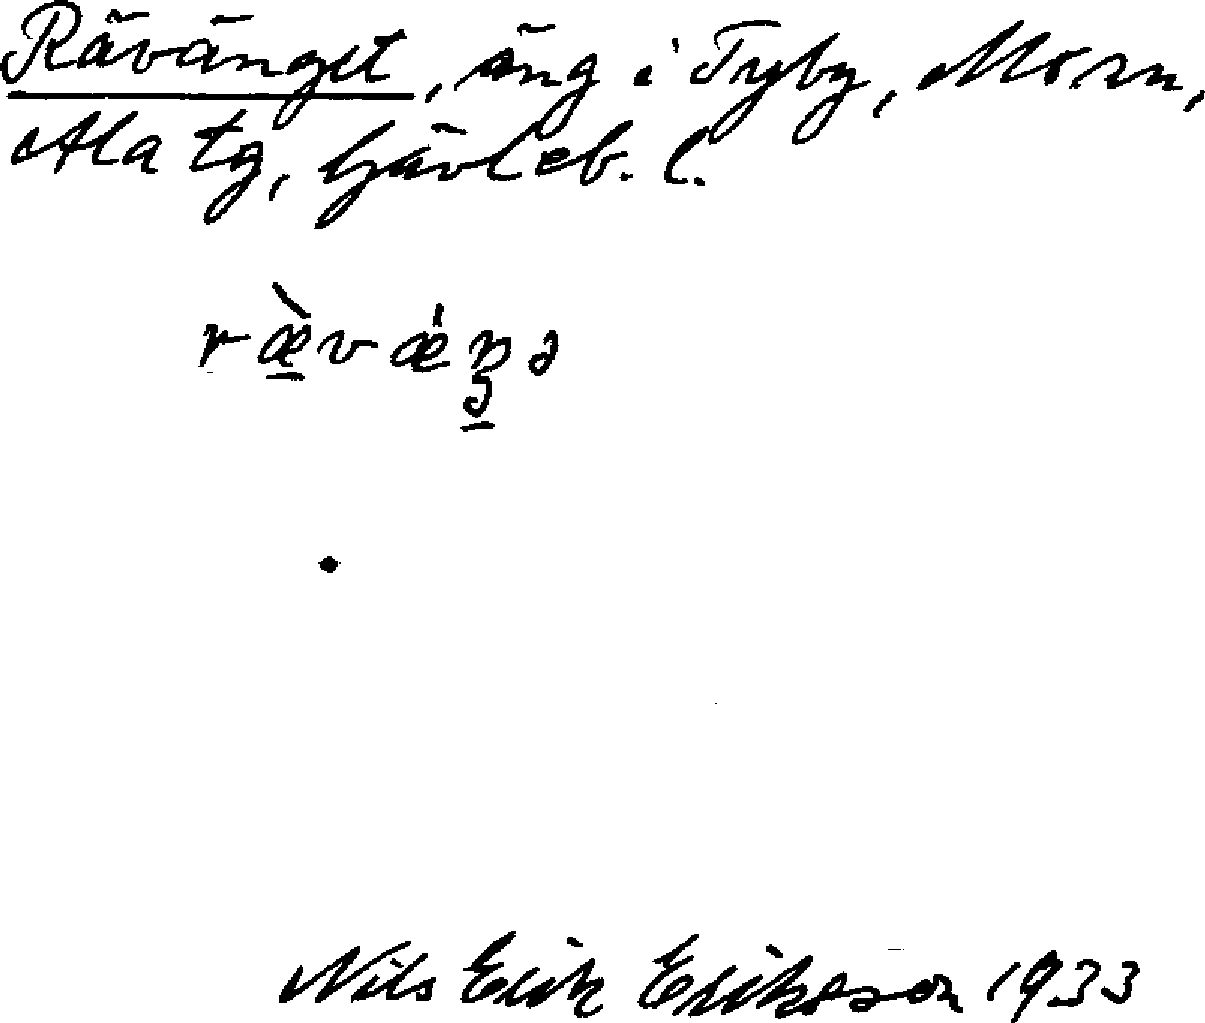 Rävänget, äng i Tyby, Mo sn,
Ala tg, Gävleb. l.
Nils Erik Eriksson 1933